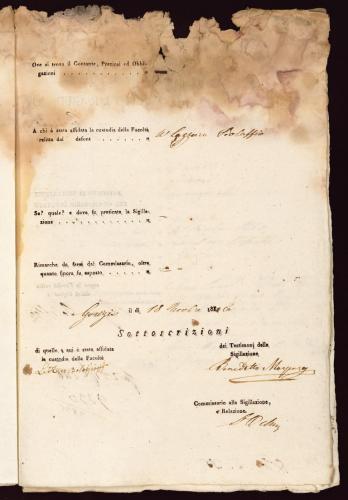 Ove si trova il Contante, Preziosi ed Obbli-
gazioni
A chi è stata affidata la custodia della Facoltà
relitta dal defont
a Lazzaro Bolaffio
Se? quale? e dove fu praticata la Sigilla-
zione
Rimarche da farsi dal Commissario, oltre
quanto finora fu esposto
Gorizia il dì 18
Sottoscrizioni
di quello, a cui è stata affidata
la custodia della Facoltà
dei Testimonj della
Sigillazione,
Benedetto
Commissario alla Sigillazione,
e Relazione.